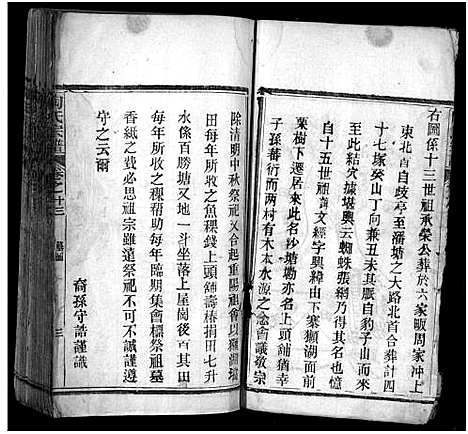 右圖係十三世祖承榮公葬於六家畈周家冲上
東北首自歧亭至潘塘之大路北首合葬計四
十七塚癸山丁向兼丑未其脈自豹子山而
起結穴據堪輿云蜘蛛張網乃得其名也憶
自十五世祖文經字興緯由下寨獺湖面前
栗樹下遷居來此名沙塘塝亦名上頭舖猶幸
子孫蕃衍而两村有木本水源之念會議敬宗
除清明中秋祭祀又合起重陽祖會以獺湖壋
田每年所收之魚稞錢上頭舖壽椿捐田七升
水係百勝塘又地一斗坐落上屋崗後百其
每年所收之稞帮助每年臨期集會標祭祖墓
香紙之費必思祖宗雖遠祭祀不可不誠謹遵
守之云爾
裔孫守誥謹識
陶氏宗譜
卷之廿三
墓圖
三